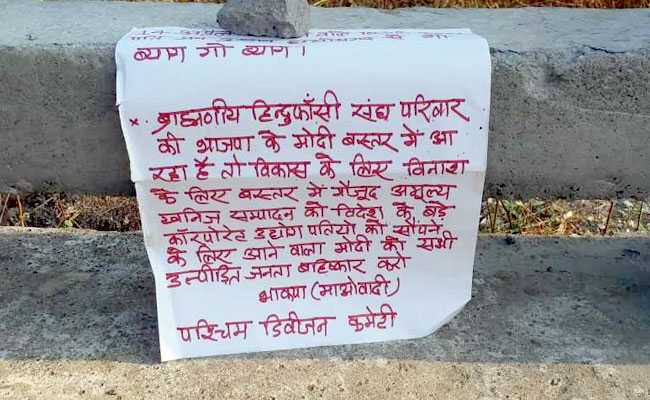 14 अप्रैल
ब्याग गो ब्याग।
× ब्राह्मणीय हिन्दुफाँसी संघ परिवार
की भाजपा के मोदी बस्तर में आ
रहा है तो विकास के लिए विनाश
के लिए बस्तर में मौजूद अमूल्य
खनिज सम्पादन को विदेश के बड़े
कॉरपोरेट उद्योग पतियों को सौंपने
के लिए आने वाला मोदी को सभी
उत्पीड़ित जनता बहिष्कार करो
भाकपा (माओवादी)
पश्चिम डिवीजन कमेटी